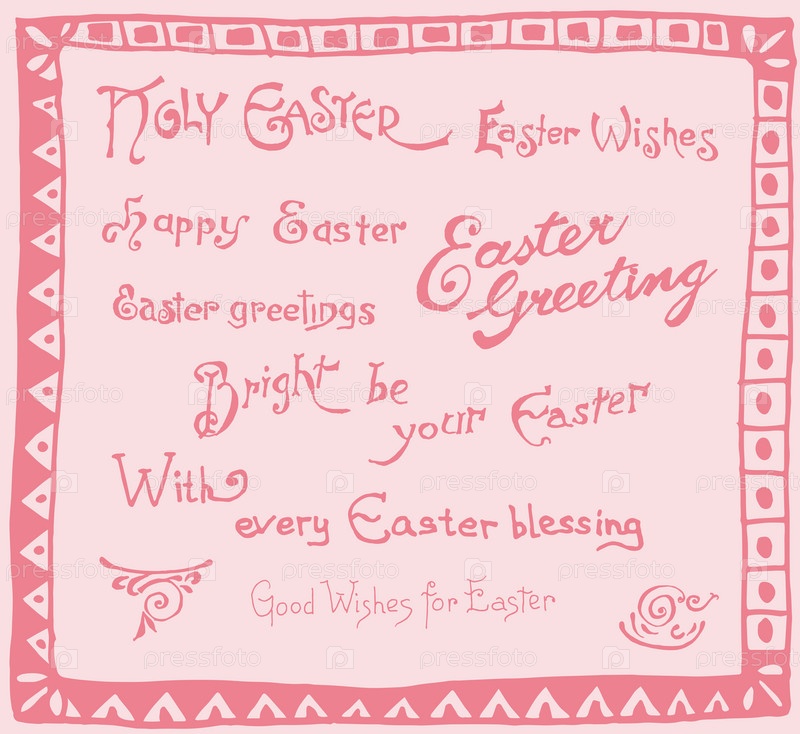 Holy Easter
Easter Wishes
happy Easter
Easter Greeting
Easter greetings
Bright be your Easter
With every Easter blessing
Good Wishes for Easter
pressfoto